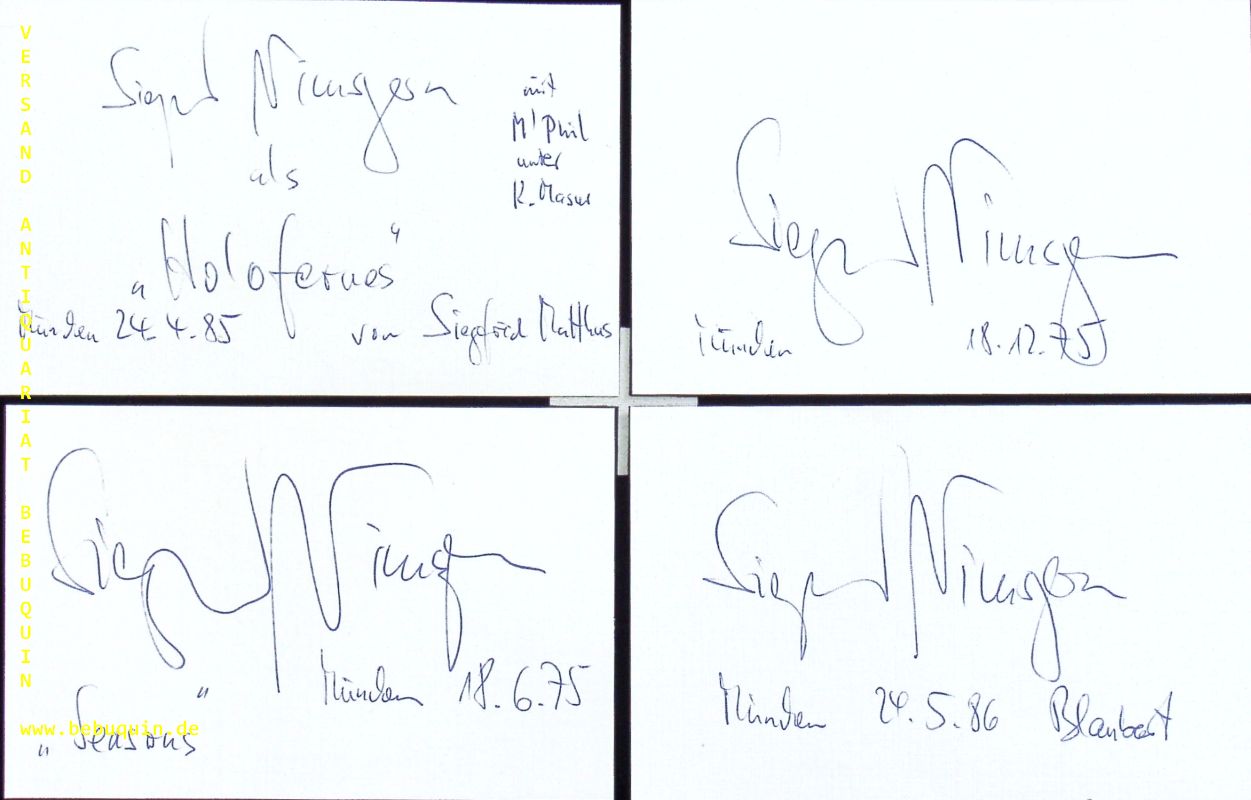 VERSAND ANTIQUARIAT BEBUQUIN
www.bebuquin.de
Siegmund Nimsgern
als
„Holofernes“
mit
M' Phil
unter
K. Masur
München 24.4.85
von Siegfried Matthus
Siegmund Nimsgern
München 18.12.75
Siegmund Nimsgern
München 18.6.75
„Seasons“
Siegmund Nimsgern
München 24.5.86 Blaubart